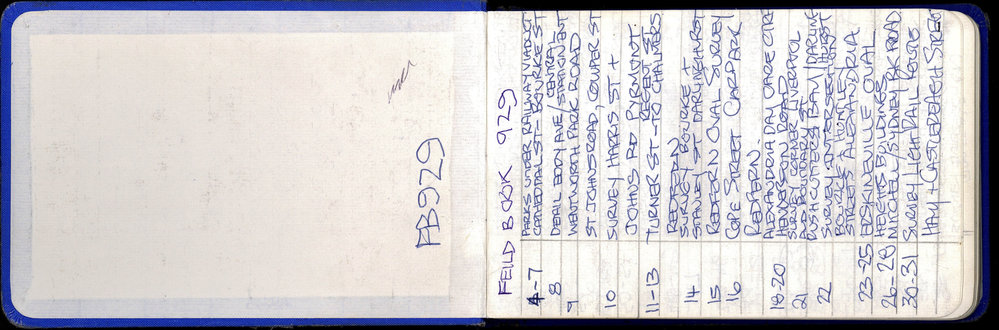 FB929
FEILD BOOK 929
4-7 PARKS UNDER RAILWAY VIADUCT
CATHEDRAL ST - BOURKE ST
8 DETAIL EDDY AVE / CENTRAL STATION ENT
9 WENTWORTH PARK ROAD
ST JOHNS ROAD, COWPER ST
10 SURVEY HARRIS ST +
JOHNS RD PYRMONT.
11-13 TURNER ST - REGENT ST TO CHALMERS
REDFERN
14 SURVEY BOURKE +
STANLEY ST DARLINGHURST
15 REDFERN OVAL SURVEY
16 COPE STREET CARPARK
REDFERN.
18-20 ALEXANDRIA DAY CARE CTRE
HENDERSON ROAD
21 SURVEY CORNER LIVERPOOL
AND BOUNDARY ST
RUSHCUTTERS BAY / DARLINGHURST
22 SURVEY INTERSECTION
BOURKE + HUNTLEY
STREETS ALEXANDRIA
23-25 ERSKINEVILLE OVAL
HEIGHTS BUILDINGS
26-28 MITCHELL / SYDNEY PK ROAD
30-31 SURVEY LIGHT RAIL ROUTE
HAY + CASTLEREAGH STREET